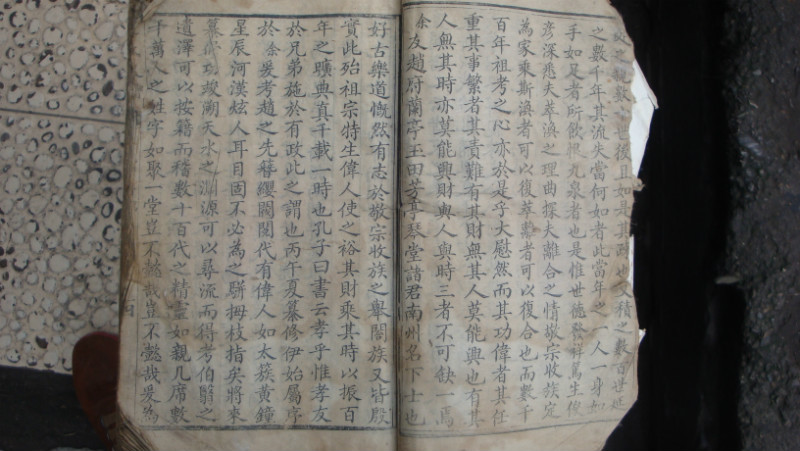 後且如是其又積之數百世延
之數千年其流失當何如者此當年之一人一身如
手如足者所飲恨九泉者也是惟世德發祥篤生俊
彦深悲夫萃渙之理曲探夫離合之情敬宗收族定
為家乘斯渙者可以復萃離者可以復合也而數千
百年祖考之心亦於是乎大慰然而其功偉者其任
重其事繁者其責難有其財無其人莫能興也有其
人無其時亦莫能興財與人與時三者不可缺一焉
余友趙府蘭亭玉田芳亭琴堂諸君南州名下士也
好古樂道慨然有志於敬宗收族之舉闔族又皆殷
實此殆祖宗特生偉人使之裕其財乘其時以振百
年之曠典真千載一時也孔子曰書云孝乎惟孝友
於兄弟施於有政此之謂也丙午夏纂修伊始屬序
於余爰考趙之先簪纓閥閱代有偉人如太簇黃鐘
星辰河漢炫人耳目固不必為之駢拇枝指矣將來
纂成功竣溯天水之淵源可以尋流而得考伯翳之
遺澤可以按籍而稽數十百代之精靈如親几席數
千萬人之姓字如聚一堂豈不懿哉豈不懿哉爰為